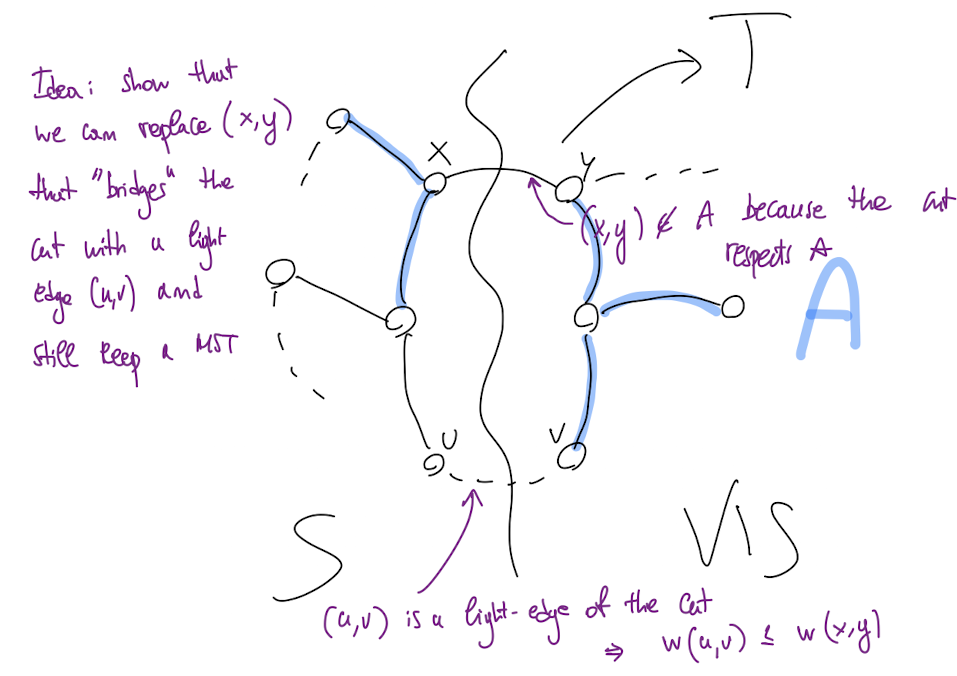 Idea: show that
we can replace (x,y)
that "bridges" the
cut with a light
edge (u,v) and
still keep a MST
T
X
Y
(x,y) ∉ A because the cut
respects A
A
U
V
S
V\S
(u,v) is a light-edge of the cut
⇒ w(u,v) ≤ w(x,y)